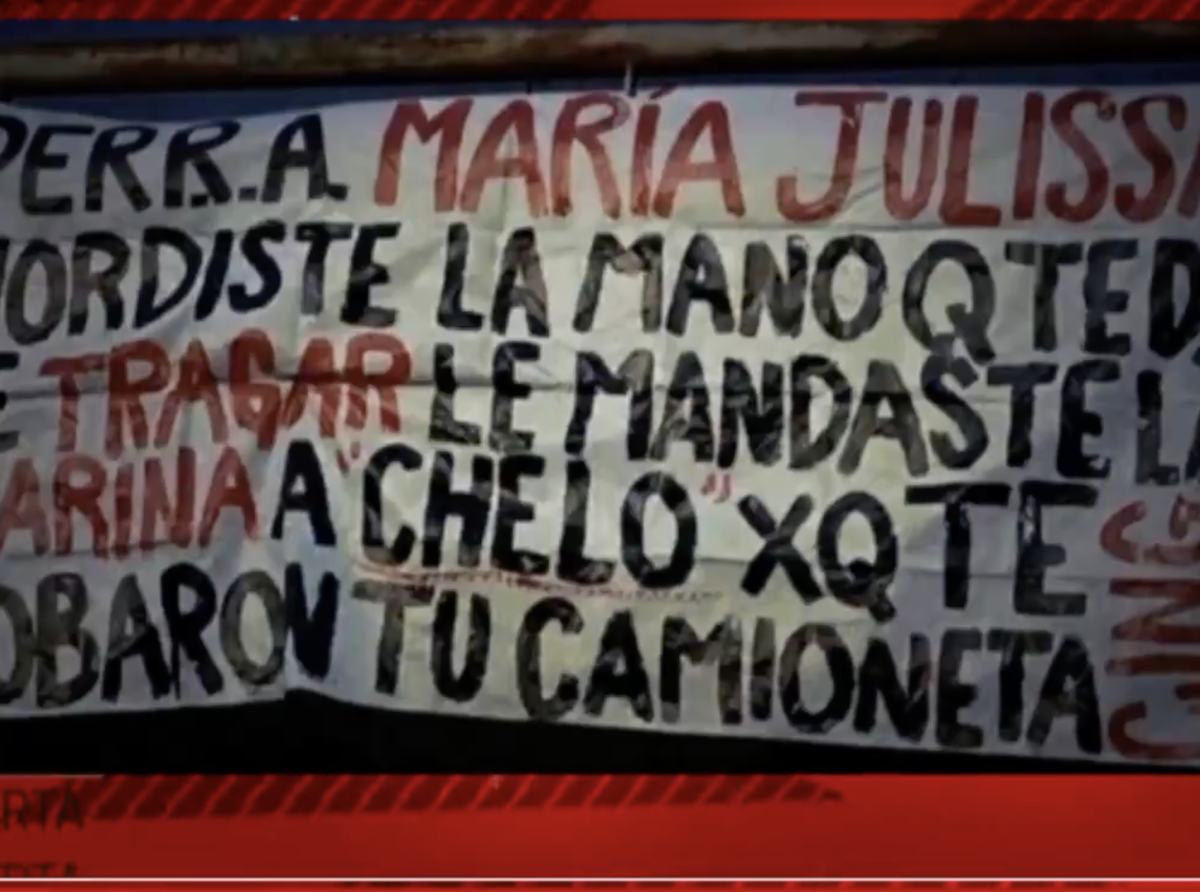 PERR.A. MARÍA JULISSA
MORDISTE LA MANO Q TE DA
E TRAGAR LE MANDASTE LA
ARINA A "CHELO" XQ TE
OBARON TU CAMIONETA
CING
ERTA